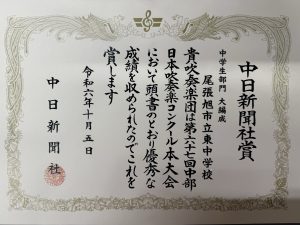 中日新聞社賞
中学生部門 大編成
尾張旭市立東中学校
貴吹奏楽団は第六十七回中部
日本吹奏楽コンクール本大会
において頭書のとおり優秀な
成績を収められたのでこれを
賞します
令和六年十月五日
中日新聞社